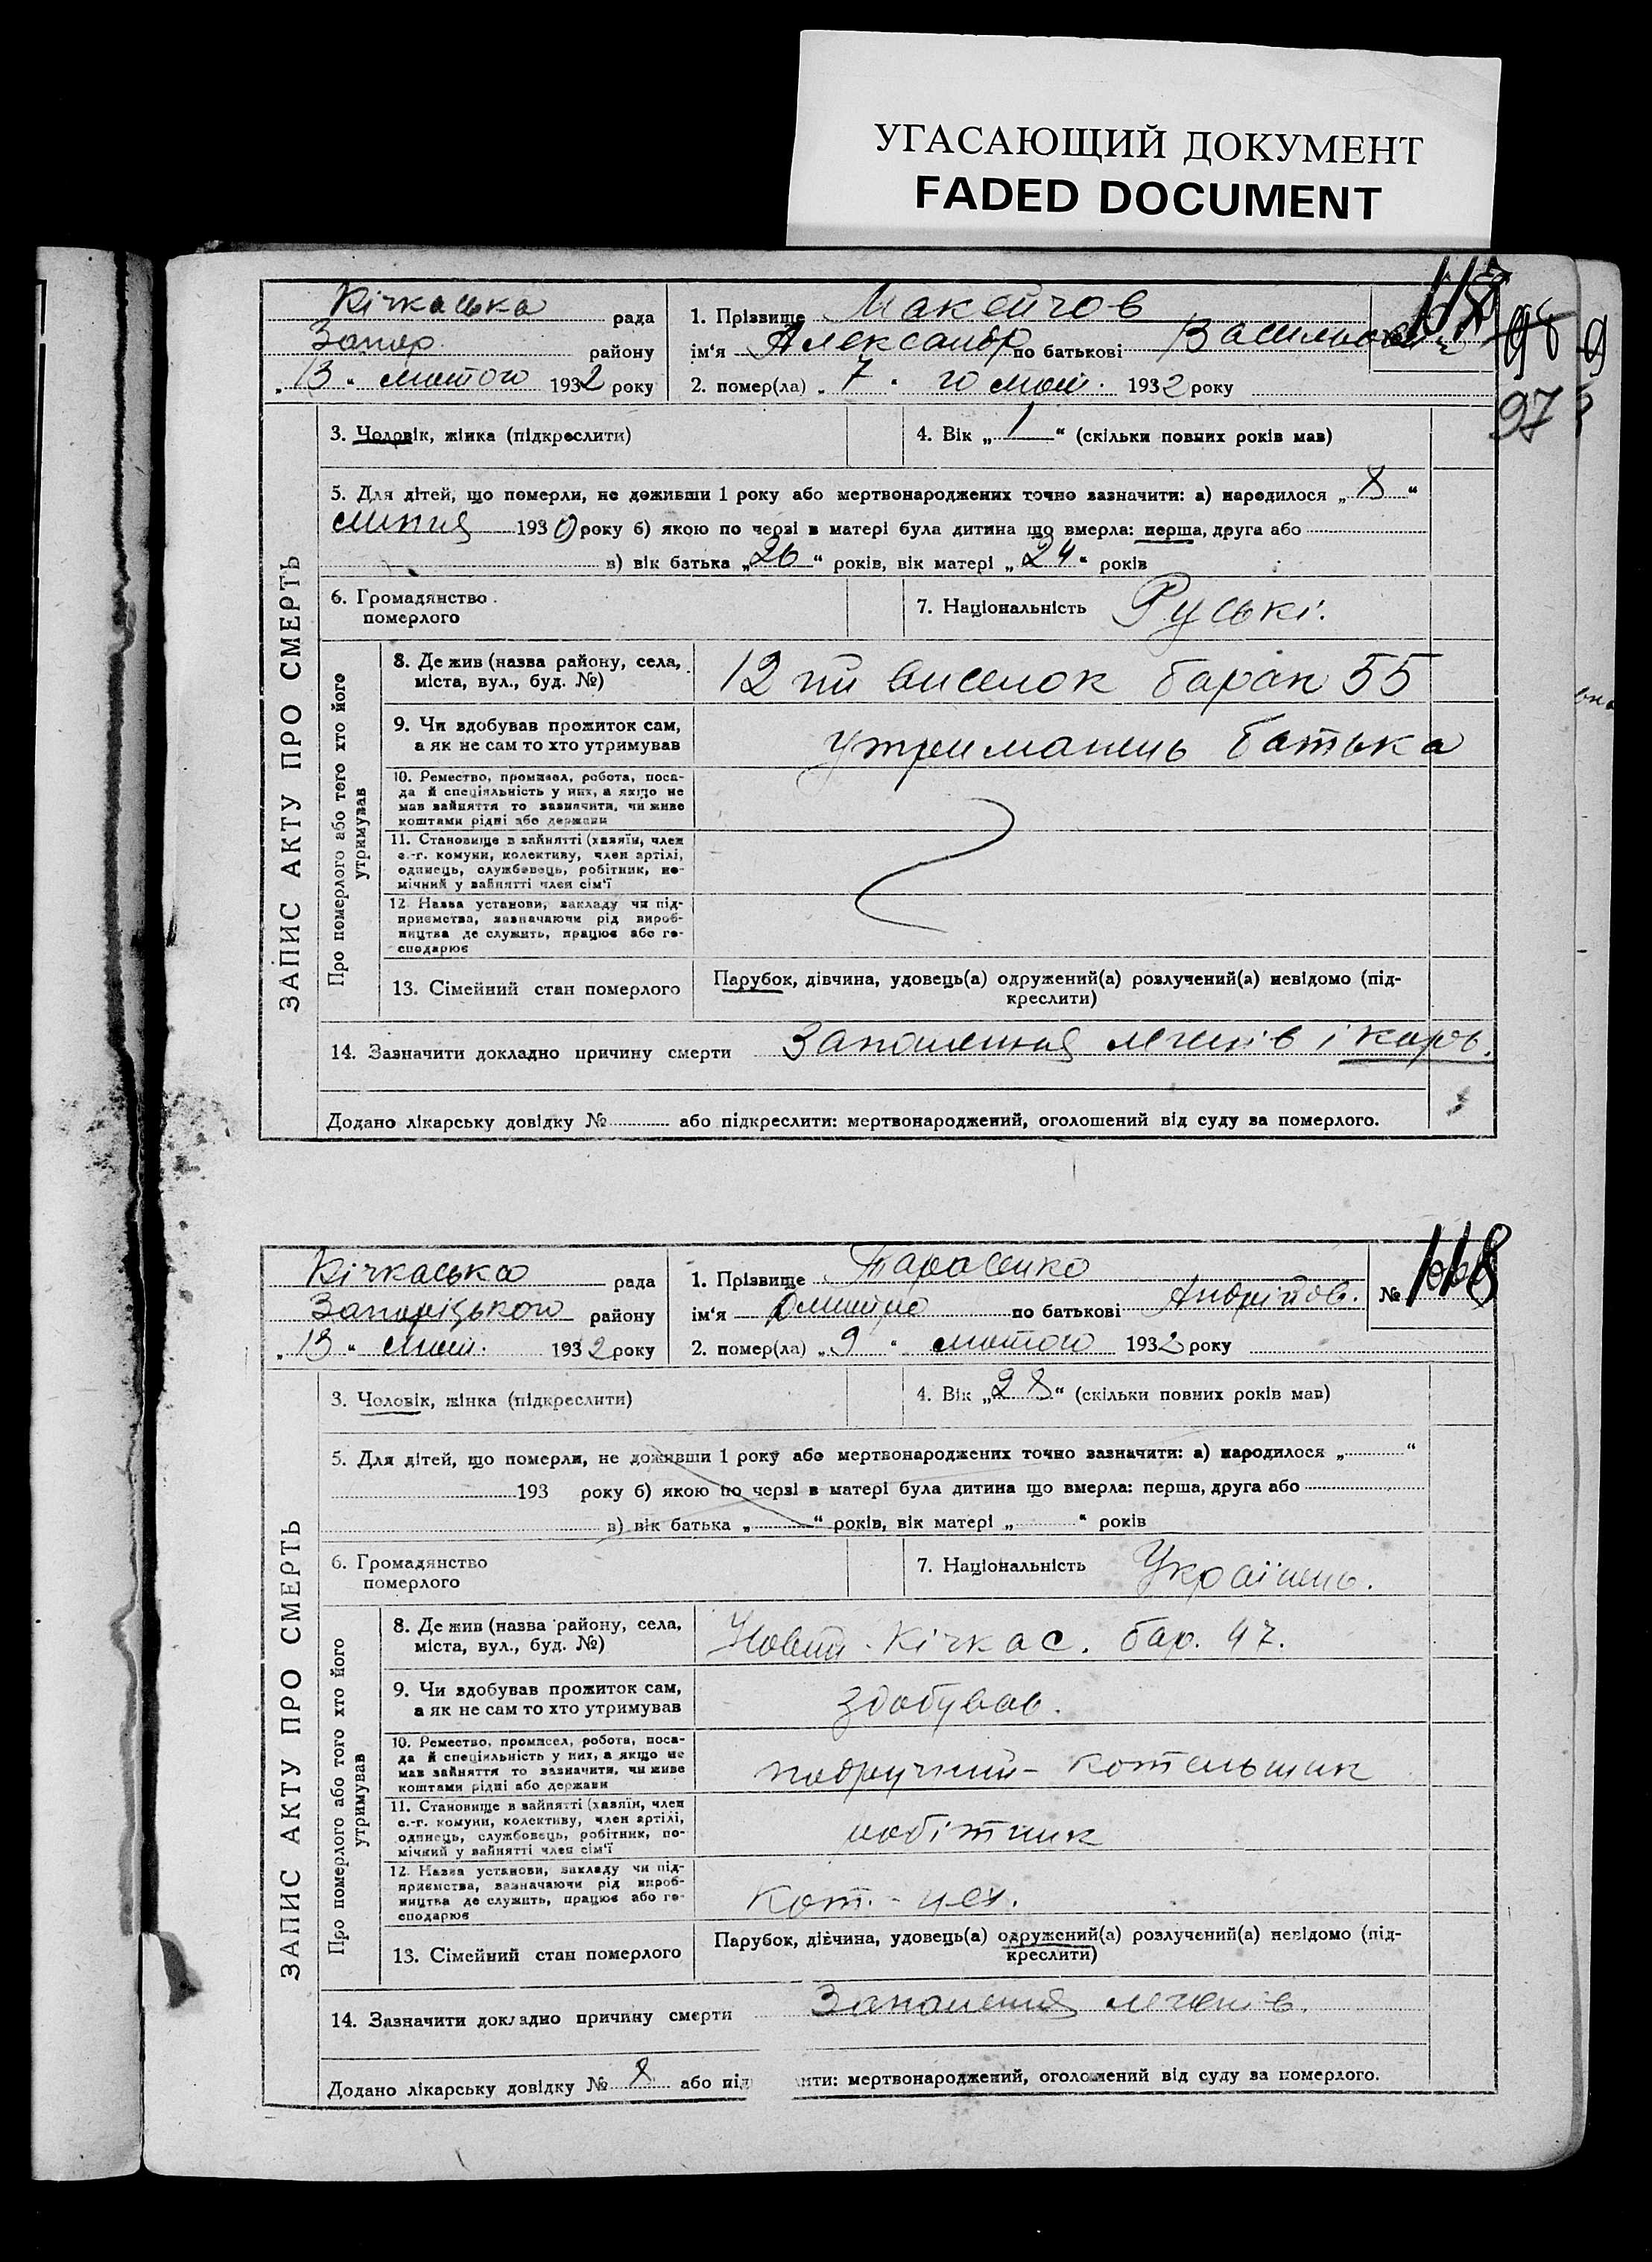 УГАСАЮЩИЙ ДОКУМЕНТ
FADED DOCUMENT
Кічкаська рада
Запор. району
„13“ лютого 1932 року
1. Прізвище Макейчов
ім‘я Александр по батькові Васильович
2. помер(ла) „7“ го лют. 1932 року
117
98
97
ЗАПИС АКТУ ПРО СМЕРТЬ
3. Чоловік, жінка (підкреслити)
4. Вік „1“ (скільки повних років мав)
5. Для дітей, що померли, не доживши 1 року або мертвонароджених точно зазначити: а) народилося „8“
липня 1930 року б) якою по черзі в матері була дитина що вмерла: перша, друга або
в) вік батька „26“ років, вік матері „24“ років
6. Громадянство
померлого
7. Національність Руські.
Про померлого або того хто його
утримував
8. Де жив (назва району, села,
міста, вул., буд. №)
12 ий виселок барак 55
9. Чи здобував прожиток сам,
а як не сам то хто утримував
утриманець батька
10. Ремество, промисел, робота, поса-
да й спеціяльність у них, а якщо не
мав заняття то зазначити, чи живе
коштами рідні або держави
11. Становище в занятті (хазяїн, член
с.-г. комуни, колективу, член артілі,
одинець, службовець, робітник, по-
мічний у занятті член сім‘ї
12. Назва установи, закладу чи під-
приємства, зазначаючи рід вироб-
ництва де служить, працює або го-
сподарює
13. Сімейний стан померлого
Парубок, дівчина, удовець(а) одружений(а) розлучений(а) невідомо (під-
креслити)
14. Зазначити докладно причину смерти Запалення легенів і
Додано лікарську довідку № або підкреслити: мертвонароджений, оголошений від суду за померлого.
Кічкаська рада
Запоріцького району
„13“ лют. 1932 року
1. Прізвище Тарасенко
ім‘я Дмитро по батькові Андрійов.
№ 118
2. помер(ла) „9“ лютого 1932 року
ЗАПИС АКТУ ПРО СМЕРТЬ
3. Чоловік, жінка (підкреслити)
4. Вік „28“ (скільки повних років мав)
5. Для дітей, що померли, не доживши 1 року або мертвонароджених точно зазначити: а) народилося „ “
193 року б) якою по черзі в матері була дитина що вмерла: перша, друга або
в) вік батька „ “ років, вік матері „ “ років
6. Громадянство
померлого
7. Національність Українець.
Про померлого або того хто його
утримував
8. Де жив (назва району, села,
міста, вул., буд. №)
Новий - Кічкас. бар. 47.
9. Чи здобував прожиток сам,
а як не сам то хто утримував
здобував.
10. Ремество, промисел, робота, поса-
да й спеціяльність у них, а якщо не
мав заняття то зазначити, чи живе
коштами рідні або держави
подручний - котельщик
11. Становище в занятті (хазяїн, член
с.-г. комуни, колективу, член артілі,
одинець, службовець, робітник, по-
мічний у занятті член сім‘ї
робітник
12. Назва установи, закладу чи під-
приємства, зазначаючи рід вироб-
ництва де служить, працює або го-
сподарює
Кот. - цех.
13. Сімейний стан померлого
Парубок, дівчина, удовець(а) одружений(а) розлучений(а) невідомо (під-
креслити)
14. Зазначити докладно причину смерти Запалення легенів.
Додано лікарську довідку № 8 або під ити: мертвонароджений, оголошений від суду за померлого.